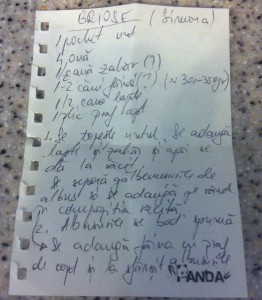 BRIOSE (Simona)
1 pachet unt
4 ouă
1 cană zahăr (?)
1-2 căni făină(?) (≈ 300-350gr)
1/2 cană lapte
1 plic praf copt
1. Se topește untul. Se adaugă
lapte și zahăr și apoi se
dă la răcit.
Se separă gălbenușurile de
albuș și se adaugă pe rând
în compoziția răcită.
2. Albușurile se bat spumă
→ Se adaugă făina cu praf
de copt și la sfârșit albușurile
PANDA